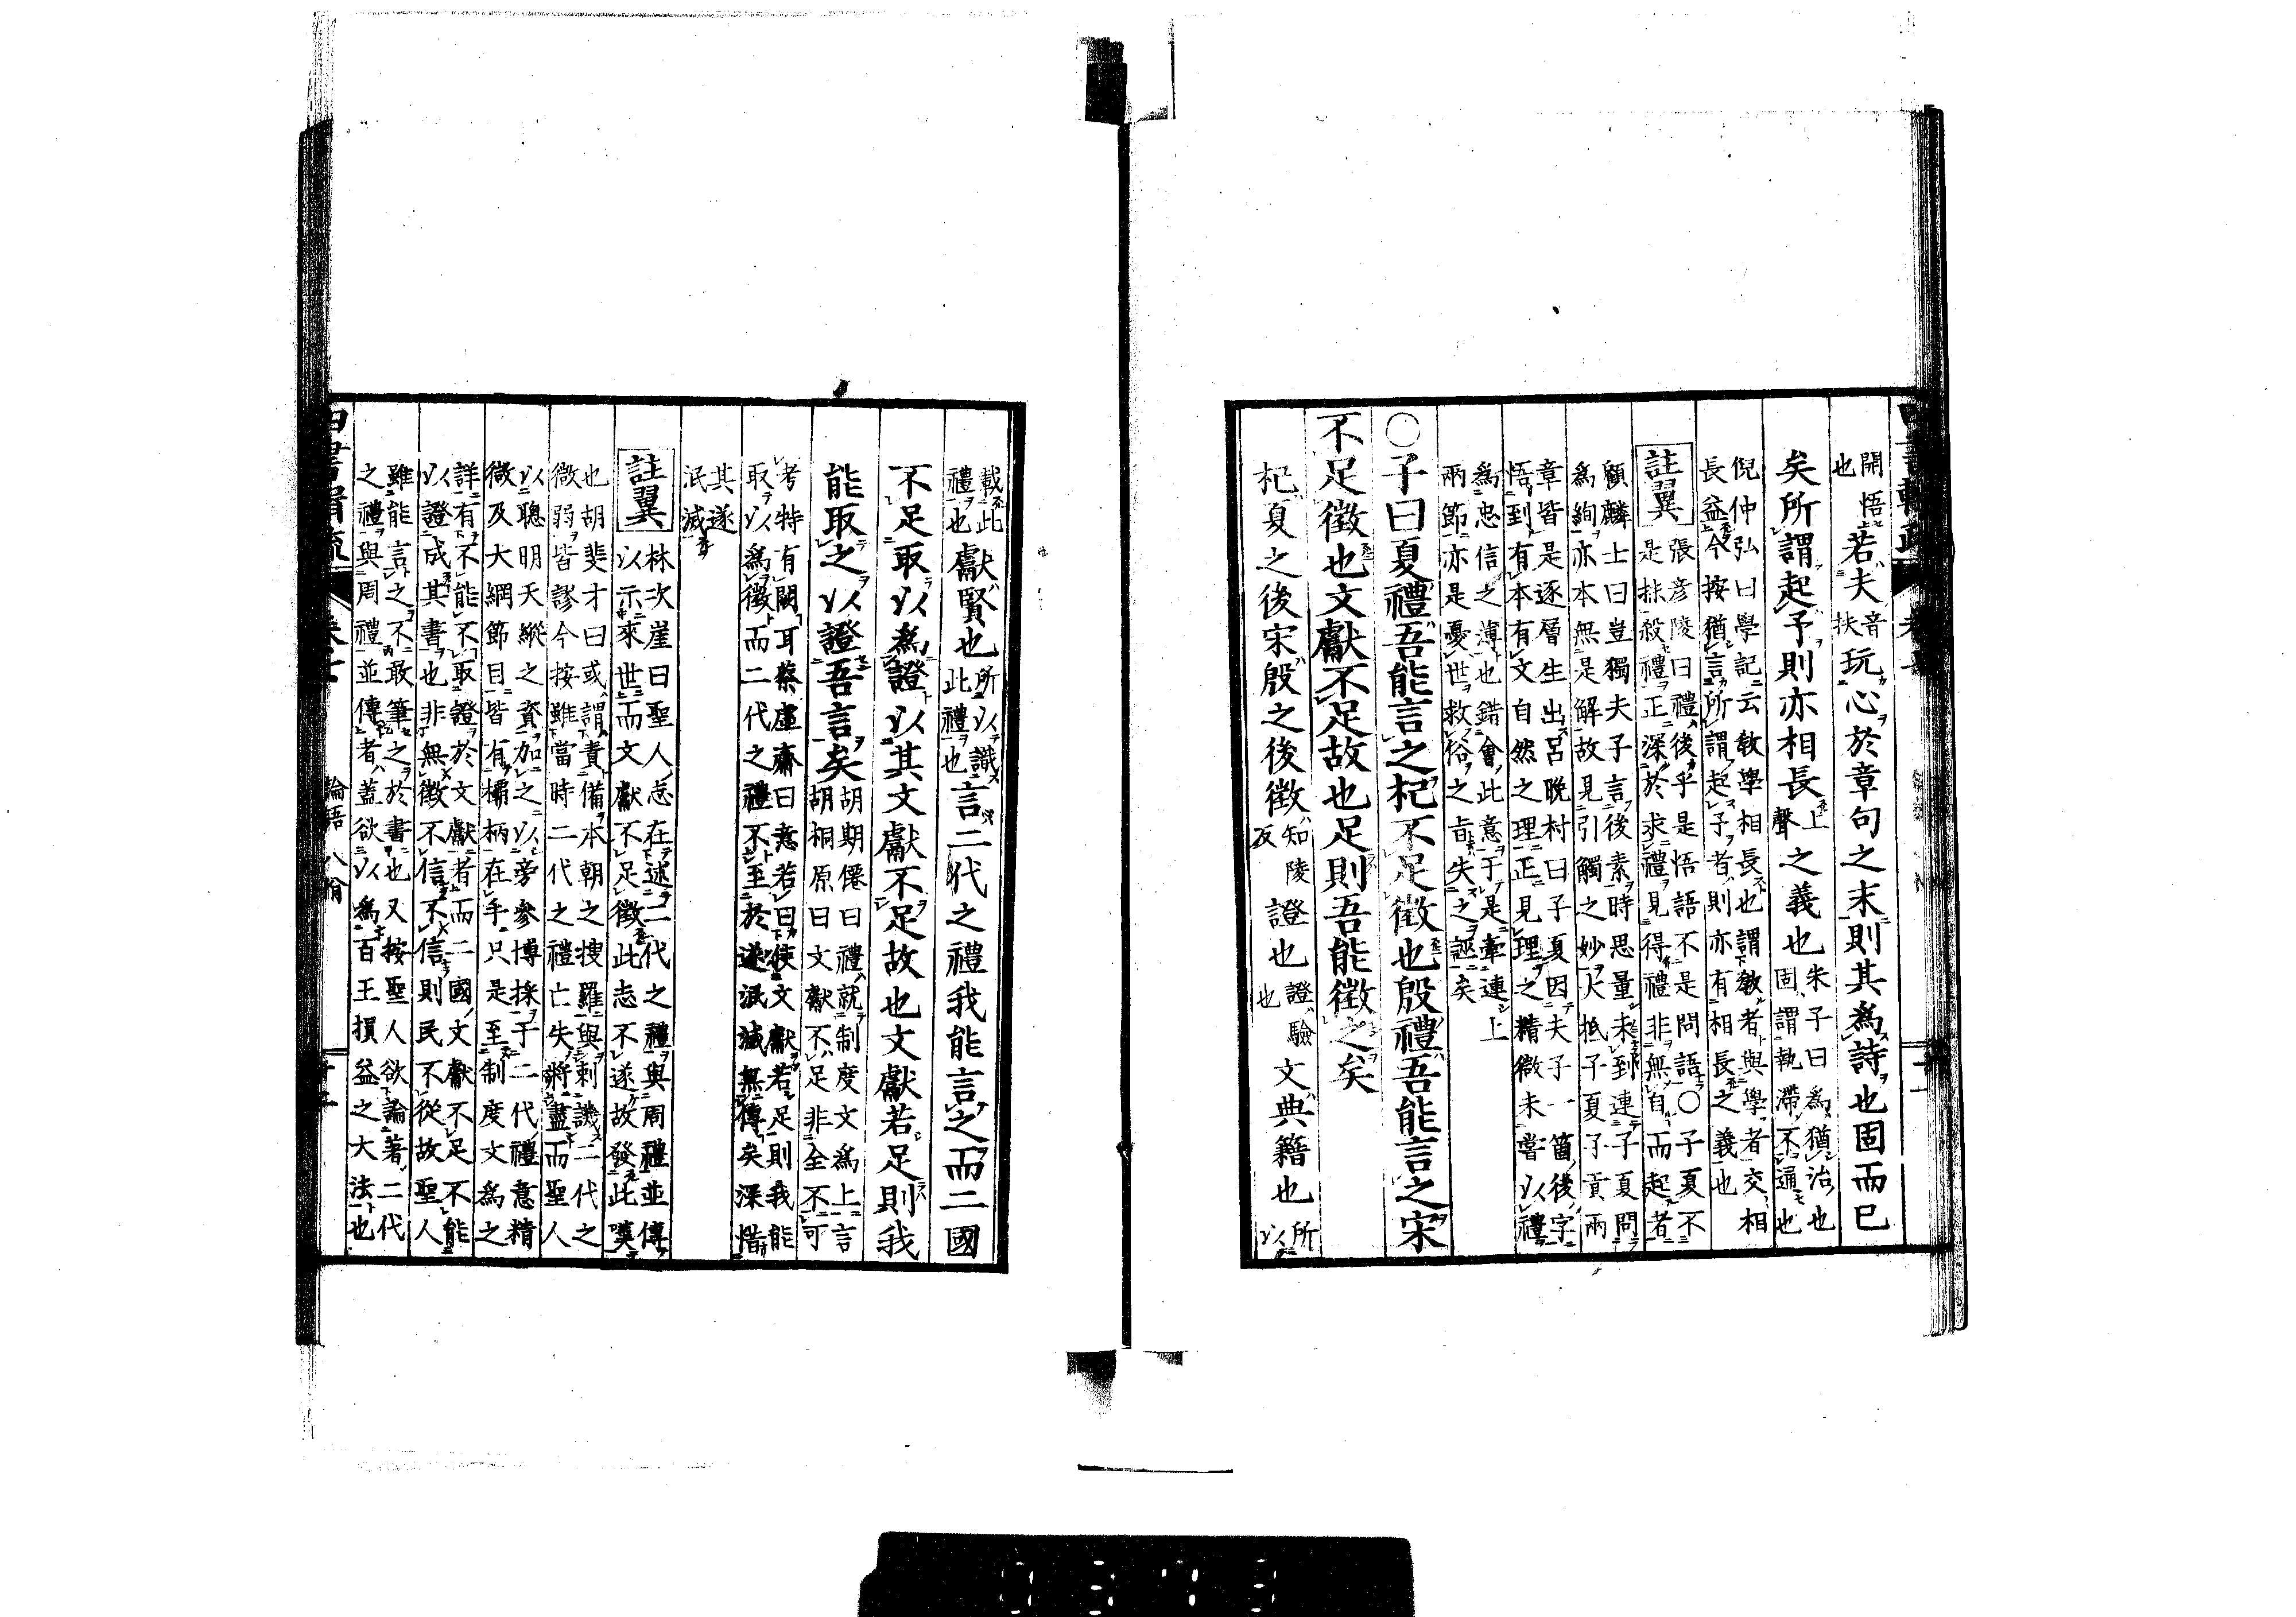 開悟
也
若夫
音
扶
玩心於章句之末則其爲詩也固而已
矣所謂起予則亦相長
上
聲
之義也
朱子曰爲猶治也
固謂執滯不通也
倪仲弘曰學記云敎學相長也謂敎者與學者交相
長益今按猶言所謂起予者則亦有相長之義也
註翼
張彥陵曰禮後乎是悟語不是問語○子夏不
是抹殺禮正深於求禮見得禮非無自而起者
顧麟士曰豈獨夫子言後素時思量未到連子夏問
爲絢亦本無是解故見引觸之妙火抵子夏子貢兩
章皆是逐層生出呂晚村曰子夏因夫子一箇後字
悟到有本有文自然之理正見理之精微未嘗以禮
爲忠信之薄也錯會此意于是牽連上
兩節亦是憂世救俗之旨失之誣矣
○子曰夏禮吾能言之杞不足徵也殷禮吾能言之宋
不足徵也文獻不足故也足則吾能徵之矣
杞夏之後宋殷之後徵
知陵
反
證也
證驗
也
文典籍也
所
以
載此
禮也
獻賢也
所以識
此禮也
言二代之禮我能言之而二國
不足取以爲證以其文獻不足故也文獻若足則我
能取之以證吾言矣
胡期僊曰禮就制度文爲上言
胡桐原曰文獻不足非全不可
考特有闕耳蔡虛齋曰意若曰使文獻若足則我能
取以爲徵而二代之禮不至於遂泯滅無傳矣深惜
其遂
泯滅
註翼
林次崖曰聖人志在述二代之禮與周禮並傳
以示來世而文獻不足徵此志不遂故發此嘆
也胡斐才曰或謂責備本朝之搜羅與刺譏二代之
微弱皆謬今按雖當時二代之禮亡失將盡而聖人
以聰明天縱之資加之以旁參博採于二代禮意精
微及大綱節目皆有欛柄在手只是至制度文爲之
詳有不能不取證於文獻者而二國文獻不足不能
以證成其書也非無徵不信不信則民不從故聖人
雖能言之不敢筆之於書也又按聖人欲論著二代
之禮與周禮並傳者蓋欲以爲百王損益之大法也
論語 八佾